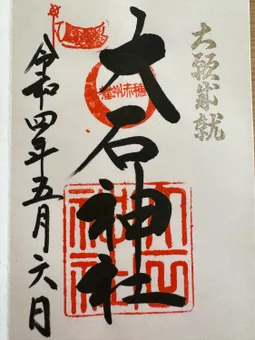 大願成就
播州赤穂
大石神社
令和四年五月六日